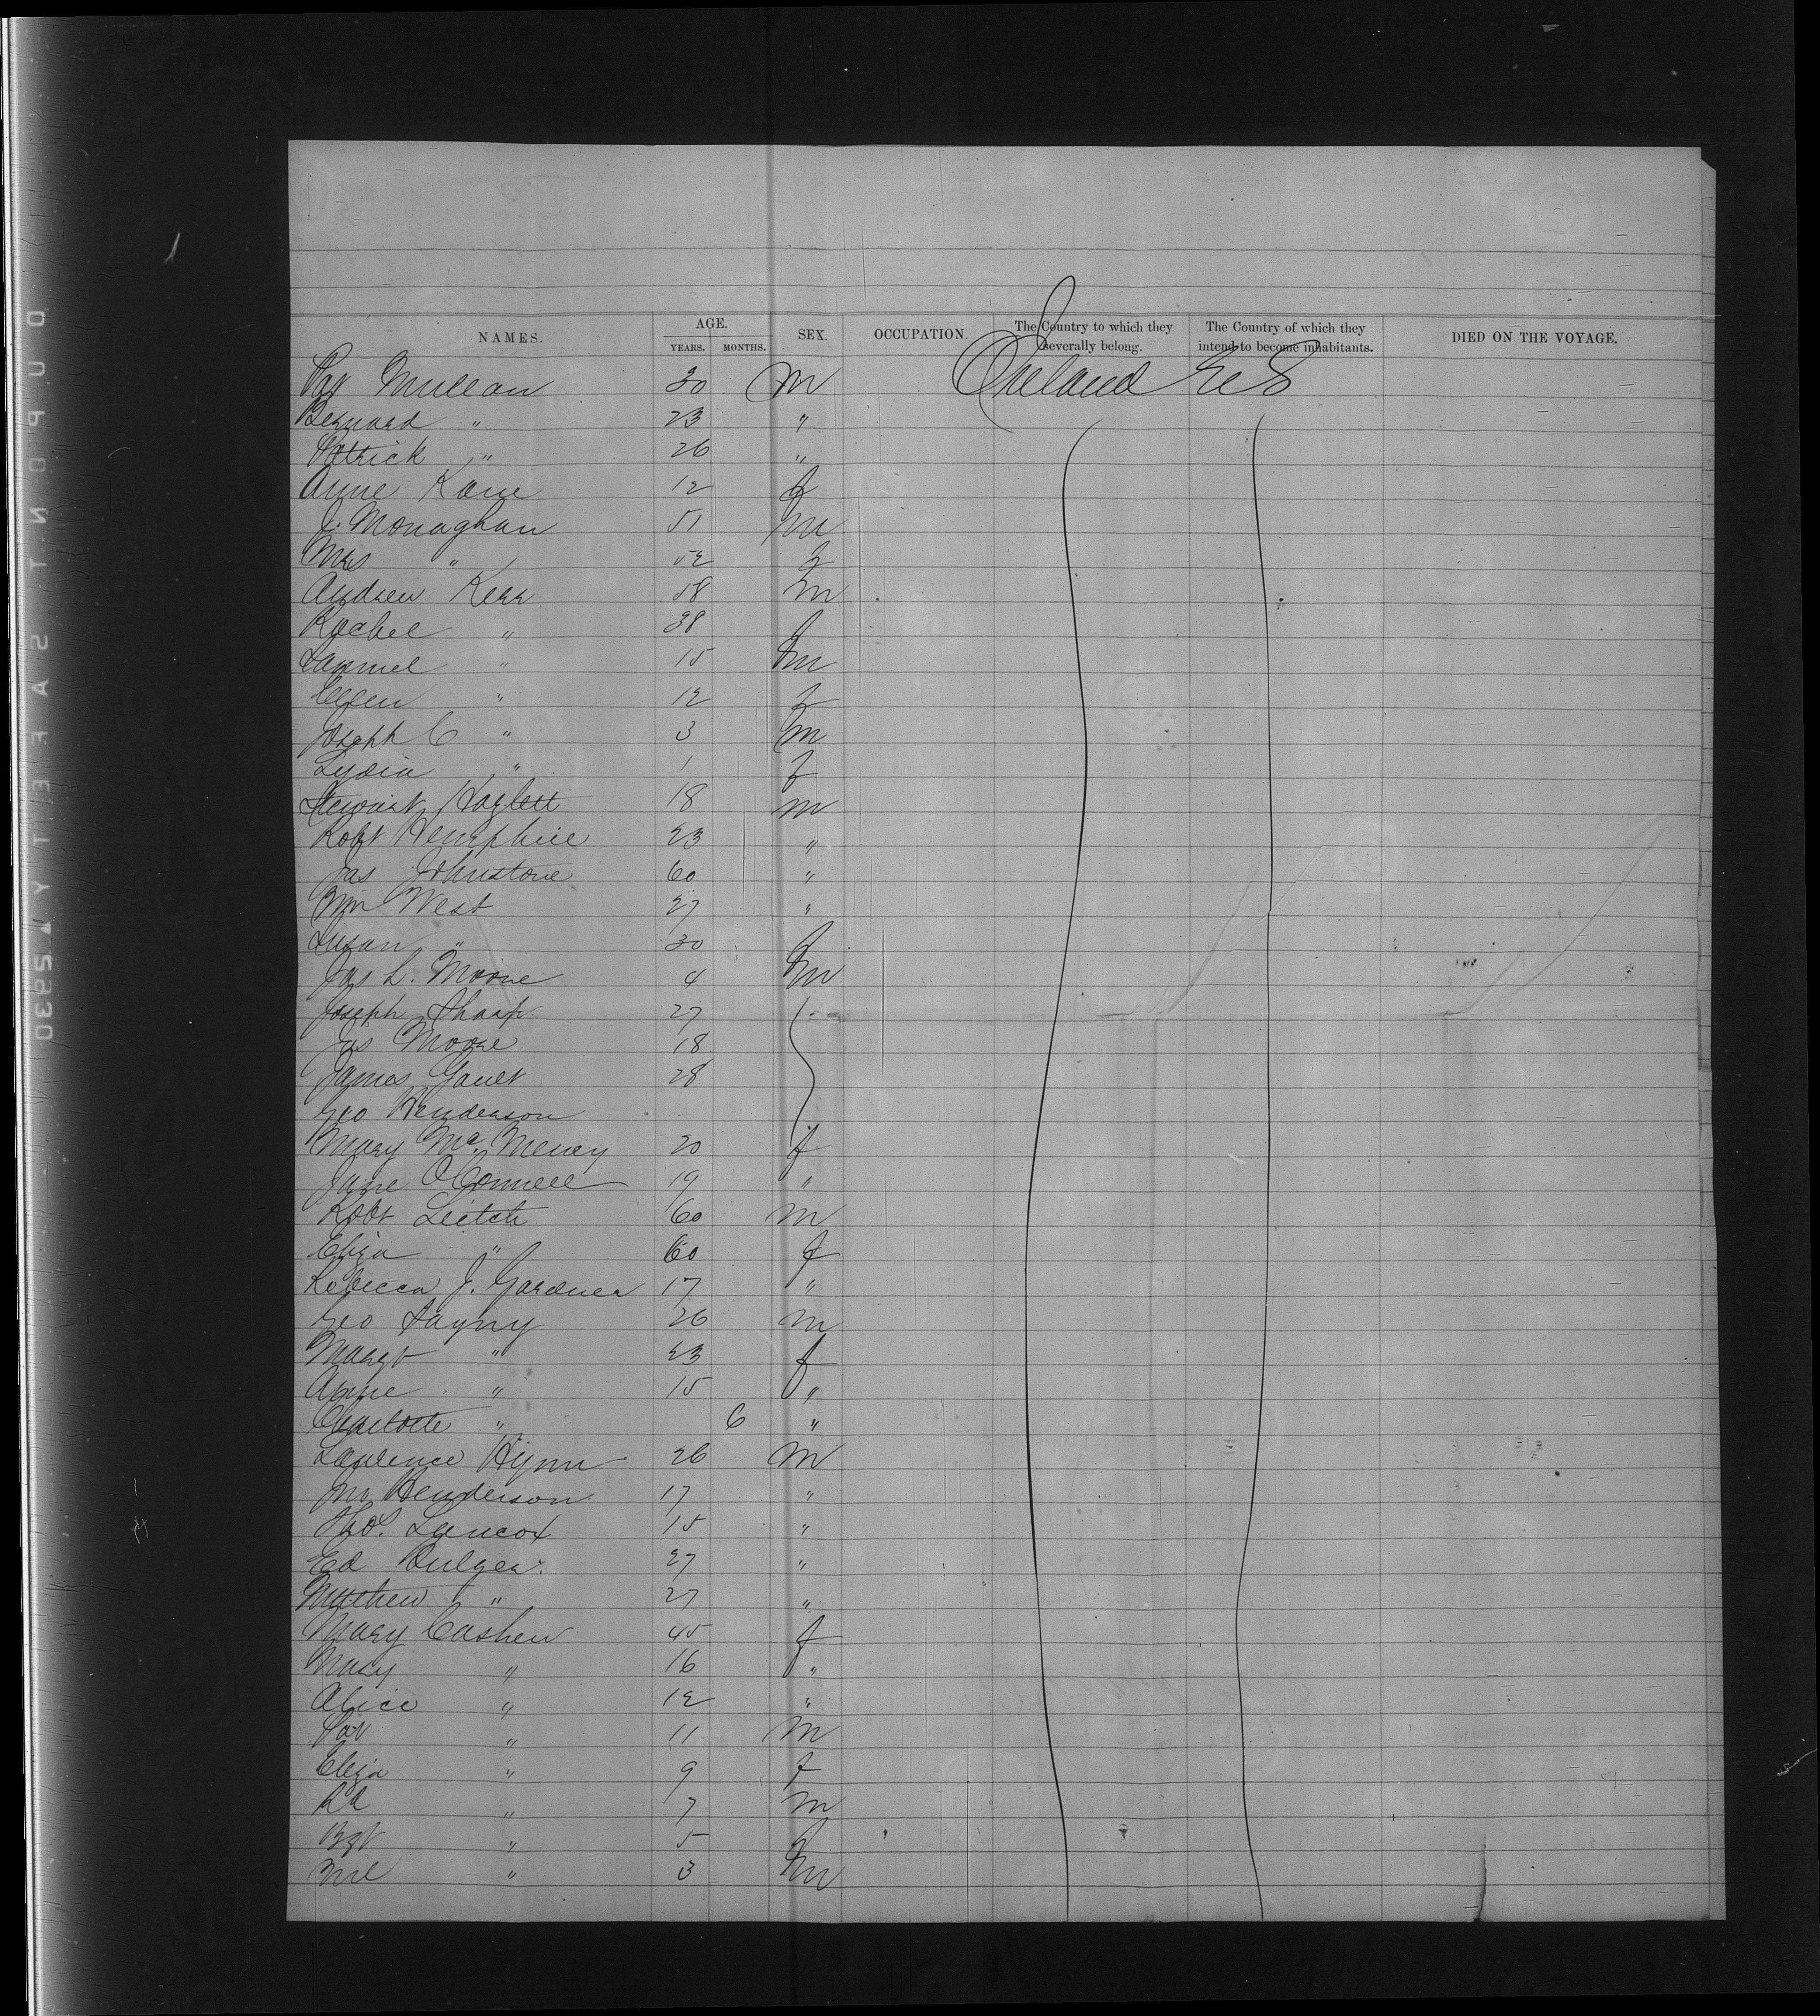 NAMES. AGE. SEX. OCCUPATION. The Country to which they severally belong. The Country of which they intend to become inhabitants. DIED ON THE VOYAGE.
YEARS. MONTHS.
Pat Mullan 30 M Ireland U S
Bernard " 23 "
Patrick " 26 "
Anne Kane 12 f
J. Monaghan 51 m
Mrs " 52 f
Andrew Kerr 58 m
Rachel " 38 f
Samuel " 15 m
Ellen " 12 f
Joseph C " 3 m
Lydia " 1 f
Stewart Hazlett 18 m
Robt Hemphill 23 "
Jas Johnstone 60 "
Wm West 27 "
Susan " 30 f
Jas L. Moore 4 m
Joseph Sharp 27
Jas Moore 18
James Gault 28
Geo Henderson
Mary Mc 20 f
Jane O'Connell 19 "
Robt Leitch 60 m
Eliza " 60 f
Rebecca J. Gardner 17 "
Geo 26 m
Margt " 23 f
Anne " 15 "
Charlotte " 6 "
Lawrence Hynn 26 m
Jno Henderson 17 "
Tho. 15 "
Ed Bulger 27 "
Matthew " 27 "
Mary Cashen 45 f
Mary " 16 "
Alice " 12 "
Pat " 11 m
Eliza " 9 f
" 7 m
Bgt " 5 f
" 3 m
DUPONT SAFETY 52930